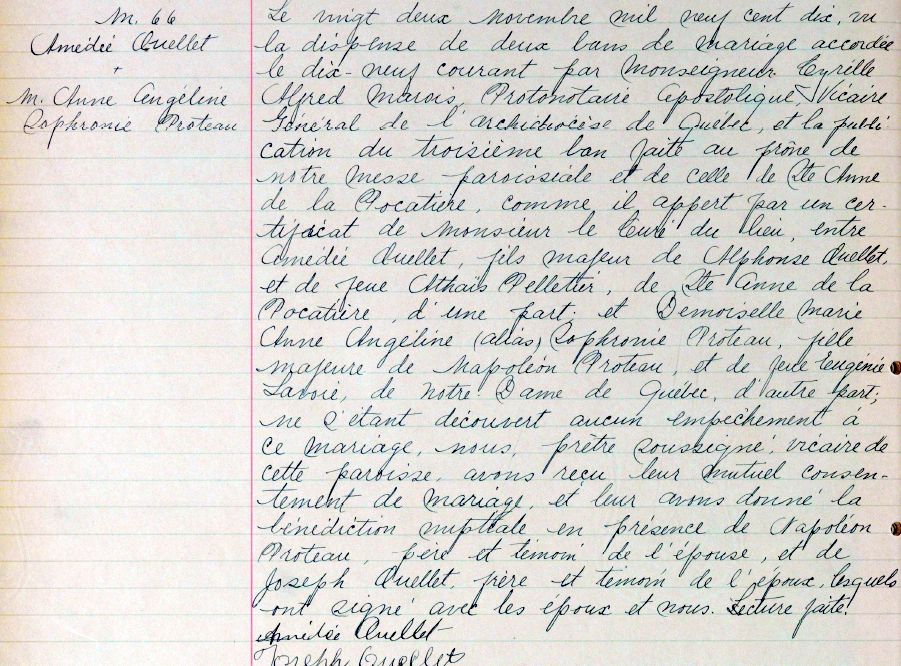 M. 66
Amédée Ouellet
+
M. Anne Angéline
Sophronie Proteau
Le vingt deux novembre mil neuf cent dix, vu
la dispense de deux bans de mariage accordée
le dix-neuf courant par Monseigneur Cyrille
Alfred Marois, Protonotaire Apostolique, Vicaire
Général de l'archidiocèse de Québec, et la publi-
cation du troisième ban faite au prône de
notre messe paroissiale et de celle de Ste Anne
de la Pocatière, comme il appert par un cer-
tificat de Monsieur le Curé du lieu, entre
Amédée Ouellet, fils majeur de Alphonse Ouellet,
et de feue Athaïs Pelletier, de Ste Anne de la
Pocatière, d'une part; et Demoiselle Marie
Anne Angéline (alias) Sophronie Proteau, fille
majeure de Napoléon Proteau, et de feue Eugénie
Lavoie, de Notre Dame de Québec, d'autre part;
ne s'étant découvert aucun empêchement à
ce mariage, nous, prêtre soussigné, vicaire de
cette paroisse, avons reçu leur mutuel consen-
tement de mariage, et leur avons donné la
bénédiction nuptiale en présence de Napoléon
Proteau, père et témoin de l'épouse, et de
Joseph Ouellet, père et témoin de l'époux, lesquels
ont signé avec les époux et nous. Lecture faite.
Amédée Ouellet
Joseph Ouellet